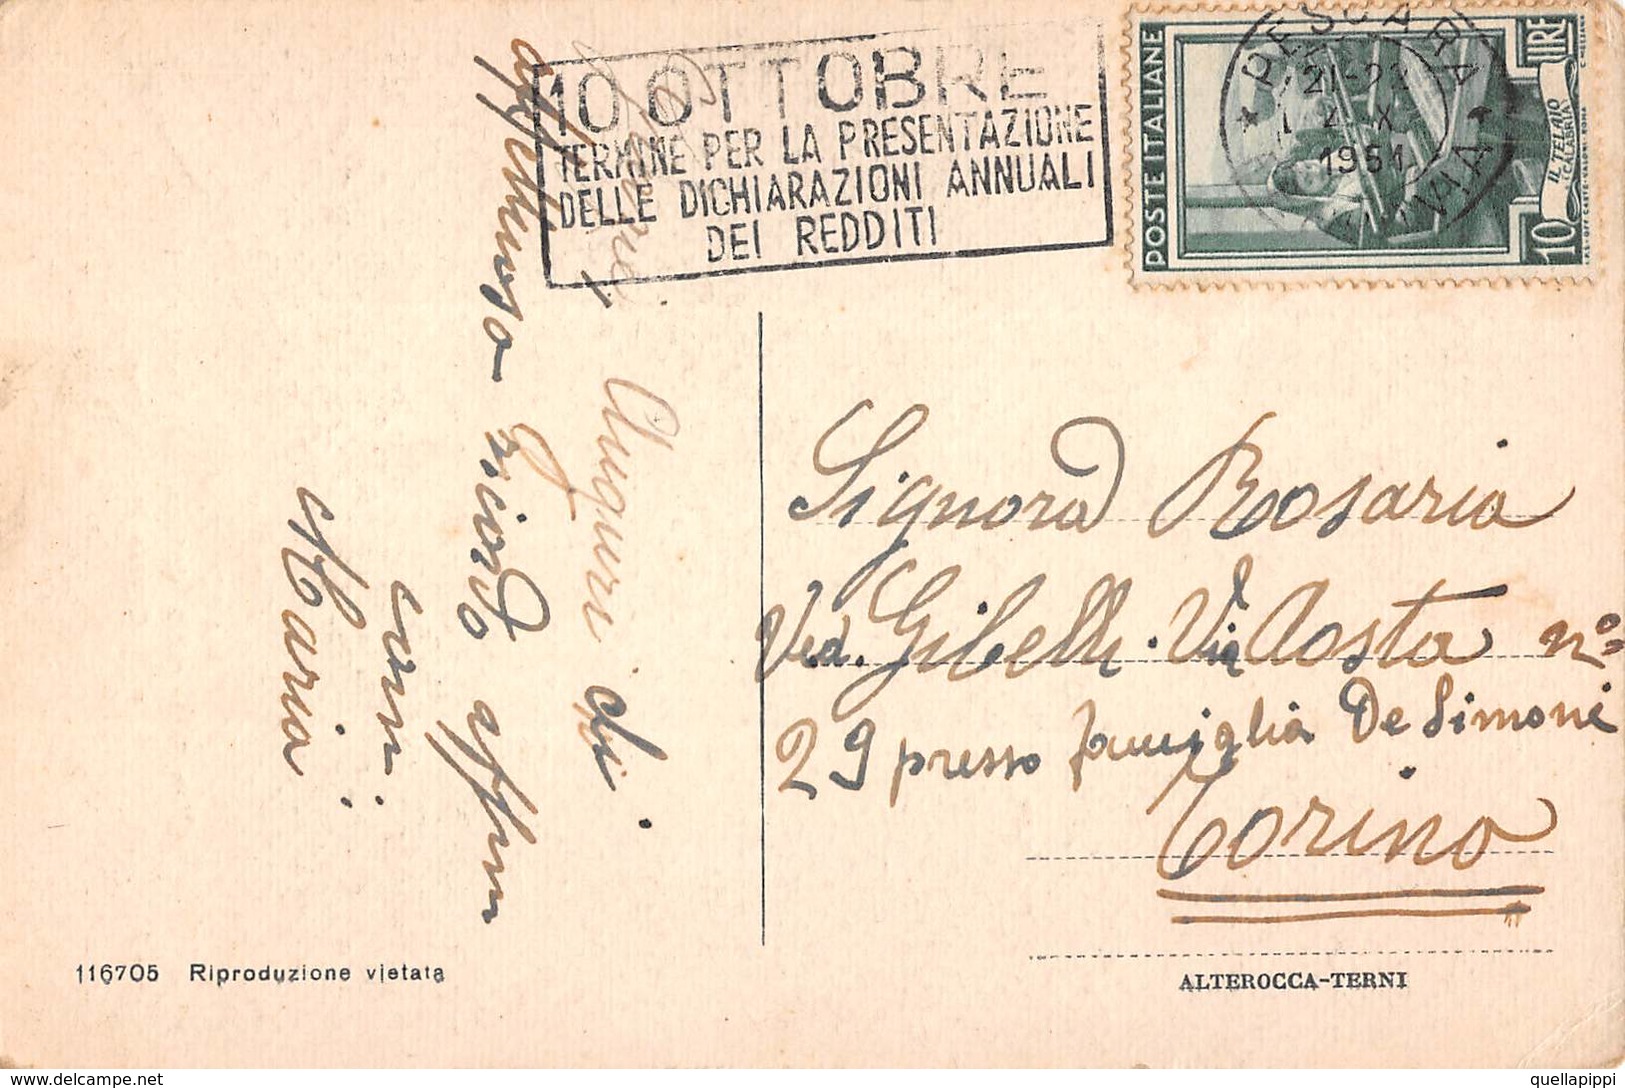 10 OTTOBRE
TERMINE PER LA PRESENTAZIONE
DELLE DICHIARAZIONI ANNUALI
DEI REDDITI
PESCARA
FERROVIA
21-22
4 X
1951
POSTE ITALIANE
10 LIRE
IL TELAIO
CALABRIA
Auguri di
affettuoso ricordo affmi
Maria
Signora Rosaria
Ved. Gibelli. Via Costa nº
29 presso famiglia De Simone
Torino
116705 Riproduzione vietata
ALTEROCCA-TERNI
delcampe.net
quellapippi